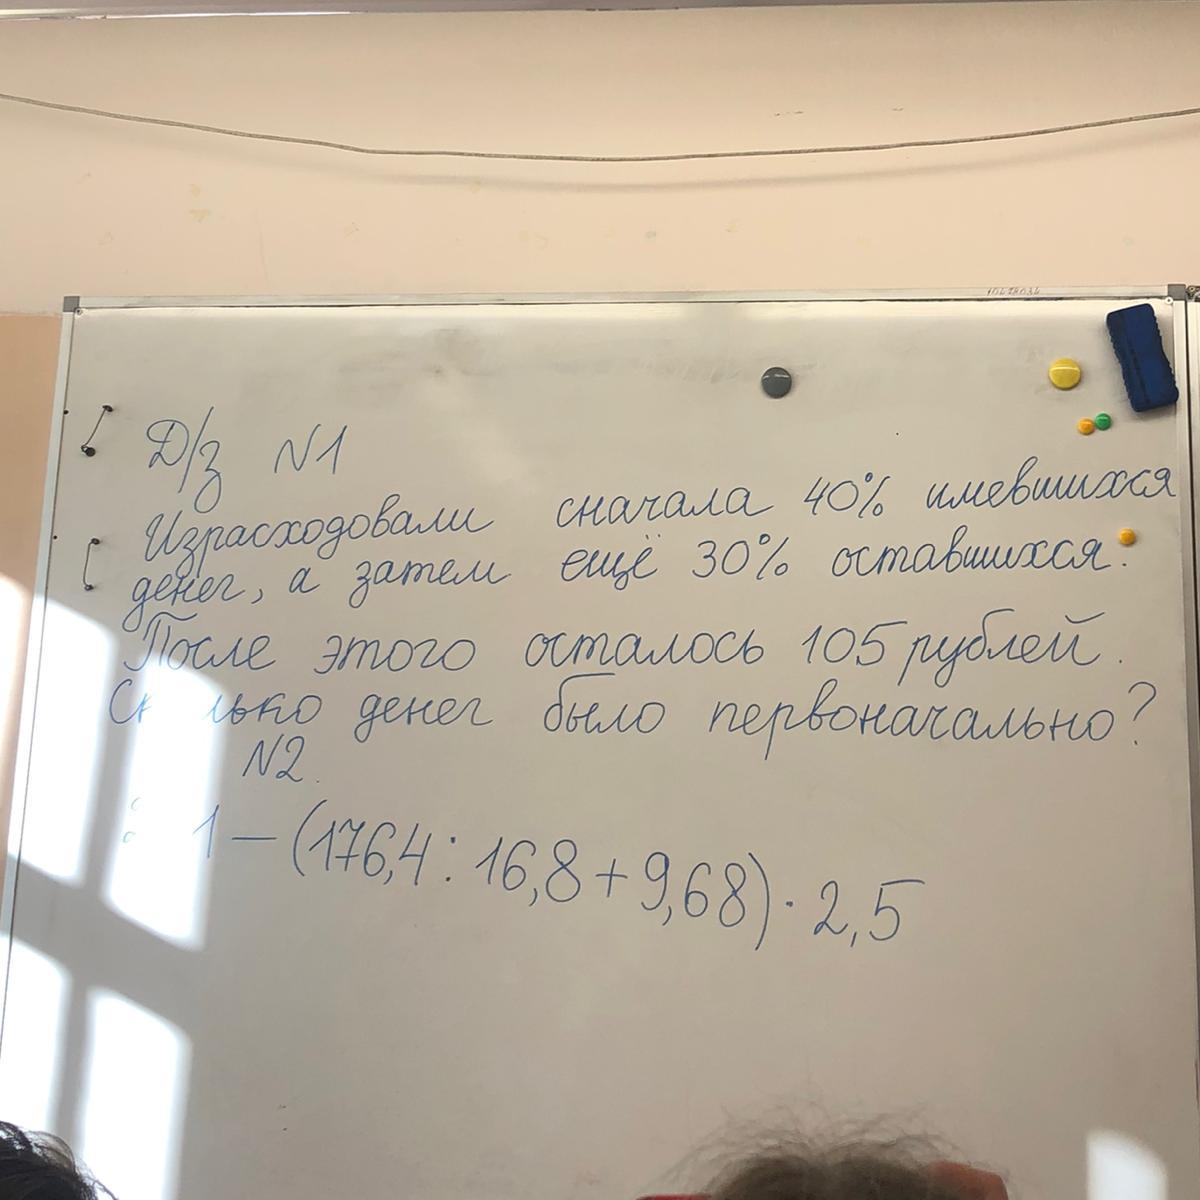 Д/з N1
Израсходовали сначала 40% имевшихся
денег, а затем ещё 30% оставшихся.
После этого осталось 105 рублей.
Сколько денег было первоначально?
N2.
1 - (176,4 : 16,8 + 9,68) · 2,5